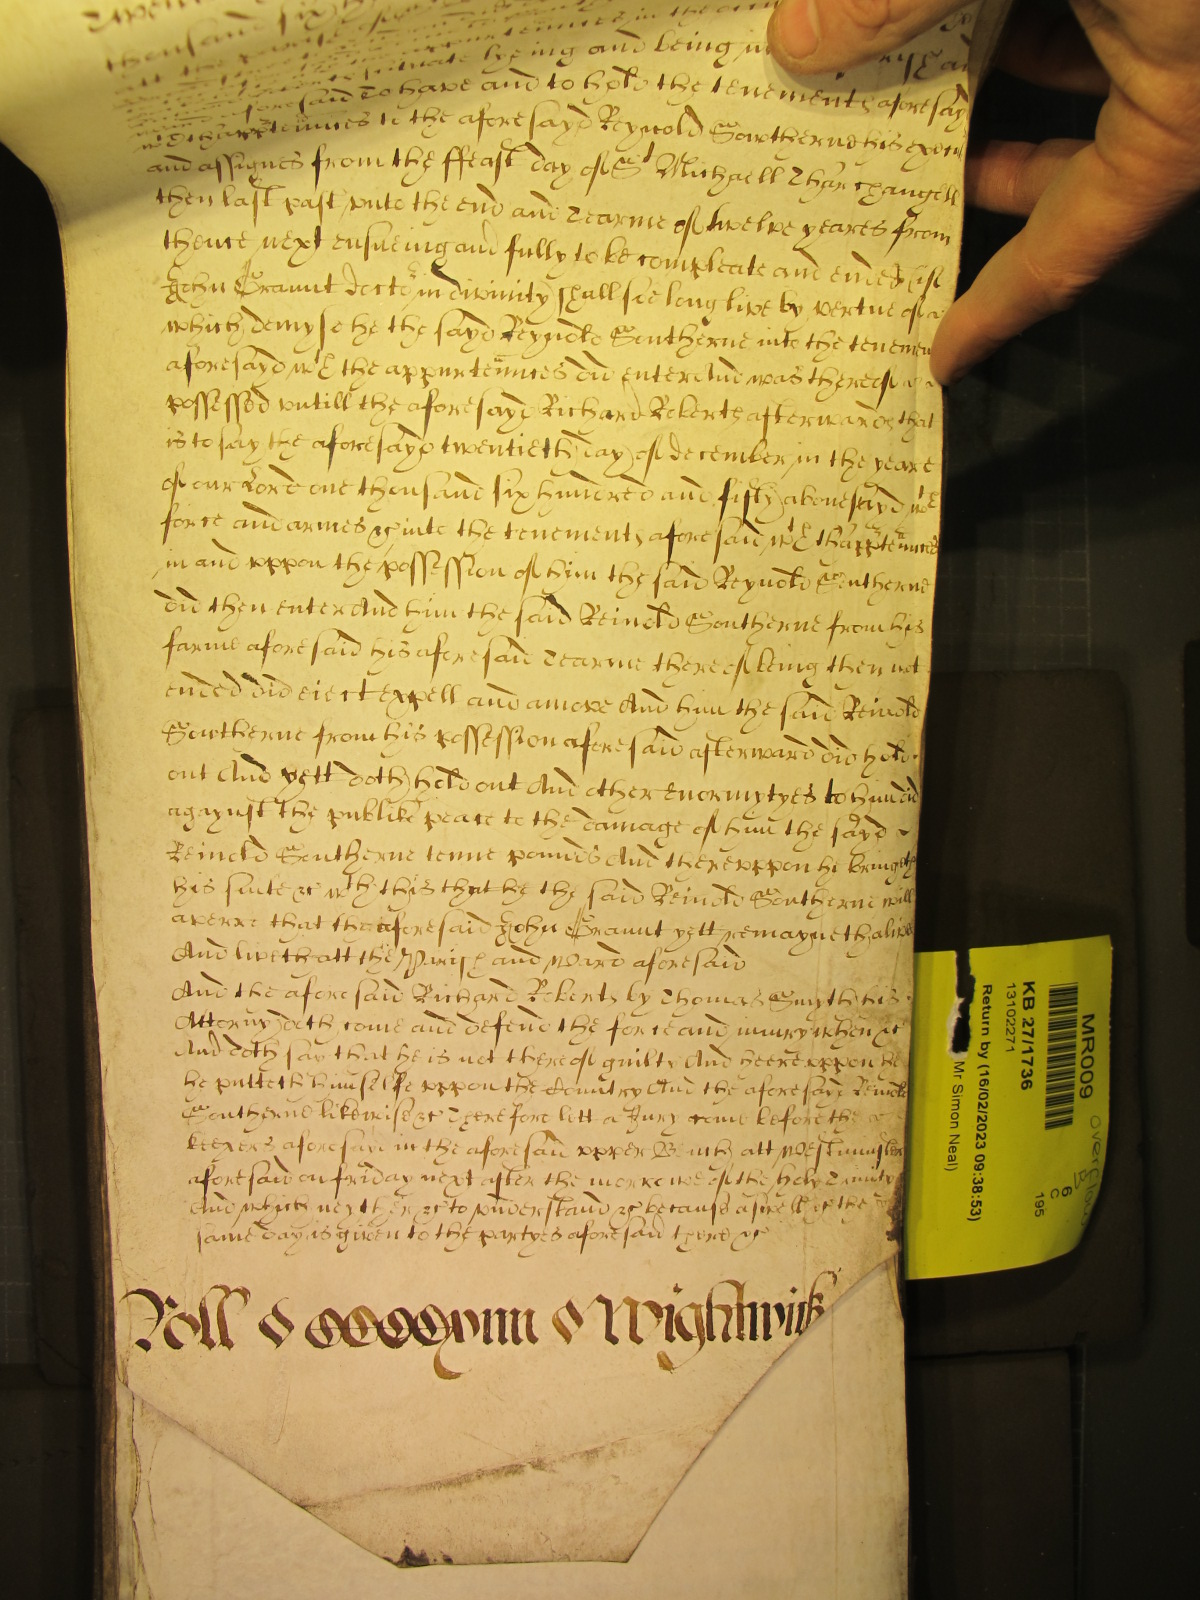 thousand six h
lyeing and being in parish an
aforesaid To have and to hold the tenements aforesayd
to the aforesayd Reynold Sowtherne his execut
and assignes from the ffeast day of St Michaell Tharchangell
then last past unto the end and Tearme of twelve yeares from
thence next ensueing and fully to be compleate and ended if
John Graunt doctor in divinity shall soe long live by vertue of a
which demyse he the sayd Reynold Southerne into the tenemen
aforesayd wth the appurtennces did enter And was thereof
possessed untill the aforesayd Richard Roberts afterwards that
is to say the aforesayd twentieth day of december in the yeare
of our Lord one thousand six hundred and fifty abovesayd wth
force and armes &c into the tenements aforesaid wth thapptennces
in and uppon the possession of him the said Reynold Southerne
did then enter And him the said Reinold Southerne from his
farme aforesaid his aforesaid Tearme thereof being then not
ended did eiect expell and amove And him the said Reinold
Sowtherne from his possession aforesaid afterward did hold
out And yett doth hold out And other Enormytyes to him did
agaynst the publike peace to the damage of him the sayd
Reinold Southerne tenne pounds And thereuppon he bringeth
his suite &c wth this that he the said Reinold Southerne will
averre that the aforesaid John Graunt yett remayneth alive
And liveth att the Parish and Ward aforesaid
And the aforesaid Richard Roberts by Thomas Smyth his
Attorny doth come and defend the force and iniury when &c
And doth say that he is not thereof guilty And heereuppon he
he putteth himselfe uppon the Country And the aforesayd Reinold
Southerne likewise &c Therefore lett a Jury come before the
keepers aforesaid in the aforesaid upper Bench att Westminster
aforesaid on friday next after the morrowe of the holy Trinity
And which neyther &c to understand &c because aswell &c the
same day is given to the partyes aforesaid there &c
Roll Wightwick
MR009 overflow
KB 27/1736
13102271
Return by (16/02/2023 09:38:53)
Mr Simon Neal)
6
C
195